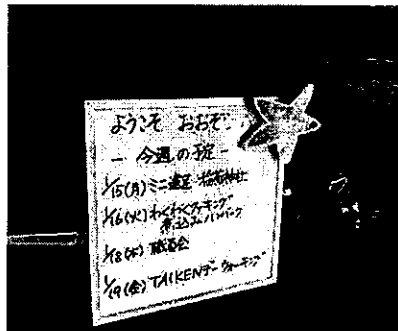 ようこそ おおぞ
- 今週の予定 -
1/15(月) ミニ遠足 稲荷神社
1/16(火) わくわくクッキング
煮込みハンバーグ
1/18(木) 職員会
1/19(金) TAIKENデー ウォーキング